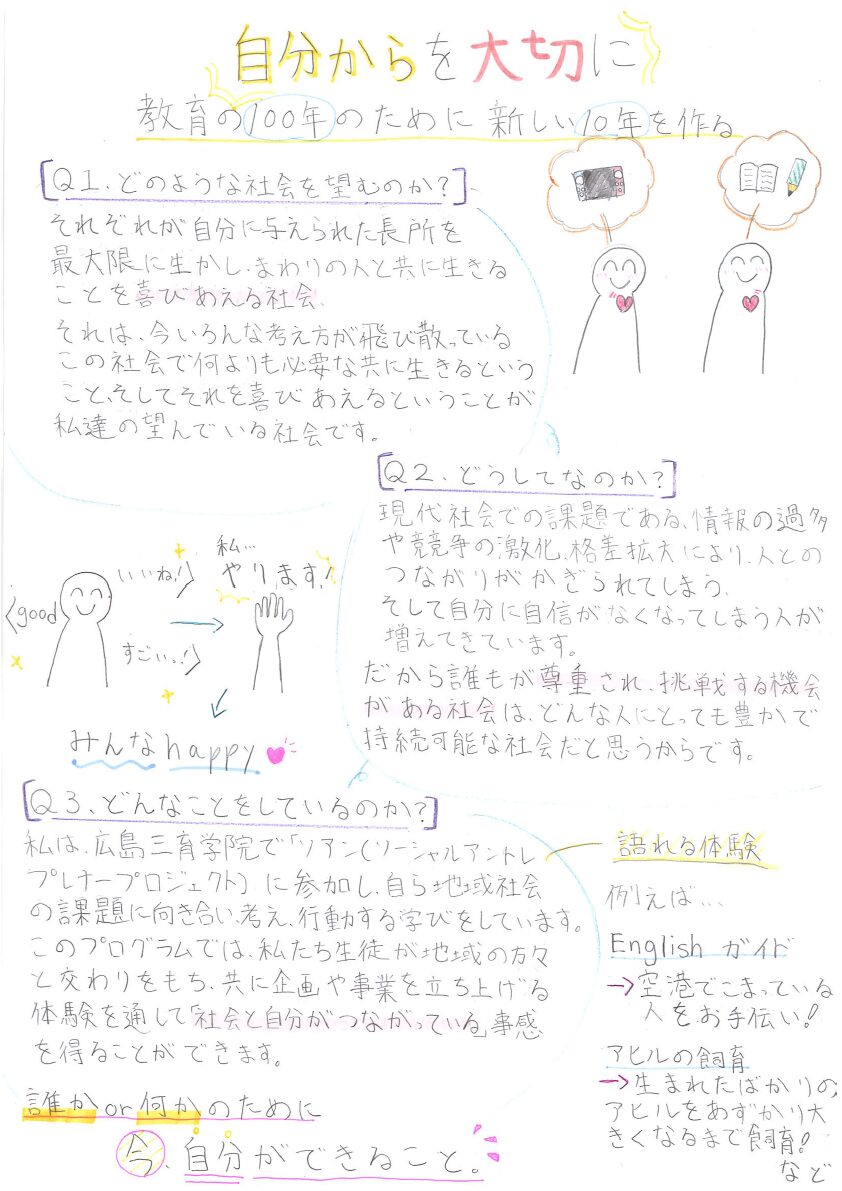 自分からを大切に
教育の100年のために 新しい10年を作る
Q1.どのような社会を望むのか?
それぞれが自分に与えられた長所を
最大限に生かし、まわりの人と共に生きる
ことを喜びあえる社会、
それは、今いろんな考え方が飛び散っている
この社会で何よりも必要な共に生きるという
こと、そしてそれを喜びあえるということが
私達の望んでいる社会です。
Q2.どうしてなのか?
現代社会での課題である、情報の過多
や競争の激化、格差拡大により、人との
つながりがかぎられてしまう、
そして自分に自信がなくなってしまう人が
増えてきています。
だから誰もが尊重され、挑戦する機会
がある社会は、どんな人にとっても豊かで
持続可能な社会だと思うからです。
good
いいね!
すごいっ!
私…
やります!
みんなhappy
Q3.どんなことをしているのか?
私は、広島三育学院で「ソアン(ソーシャルアントレ
プレナープロジェクト)に参加し、自ら地域社会
の課題に向き合い、考え、行動する学びをしています。
このプログラムでは、私たち生徒が地域の方々
と交わりをもち、共に企画や事業を立ち上げる
体験を通して「社会と自分がつながっている」事感
を得ることができます。
語れる体験
例えば…
English ガイド
→空港でこまっている
人をお手伝い!
アヒルの飼育
→生まれたばかりの、
アヒルをあずかり大
きくなるまで飼育!
など
誰か or 何かのために
今、自分ができること。